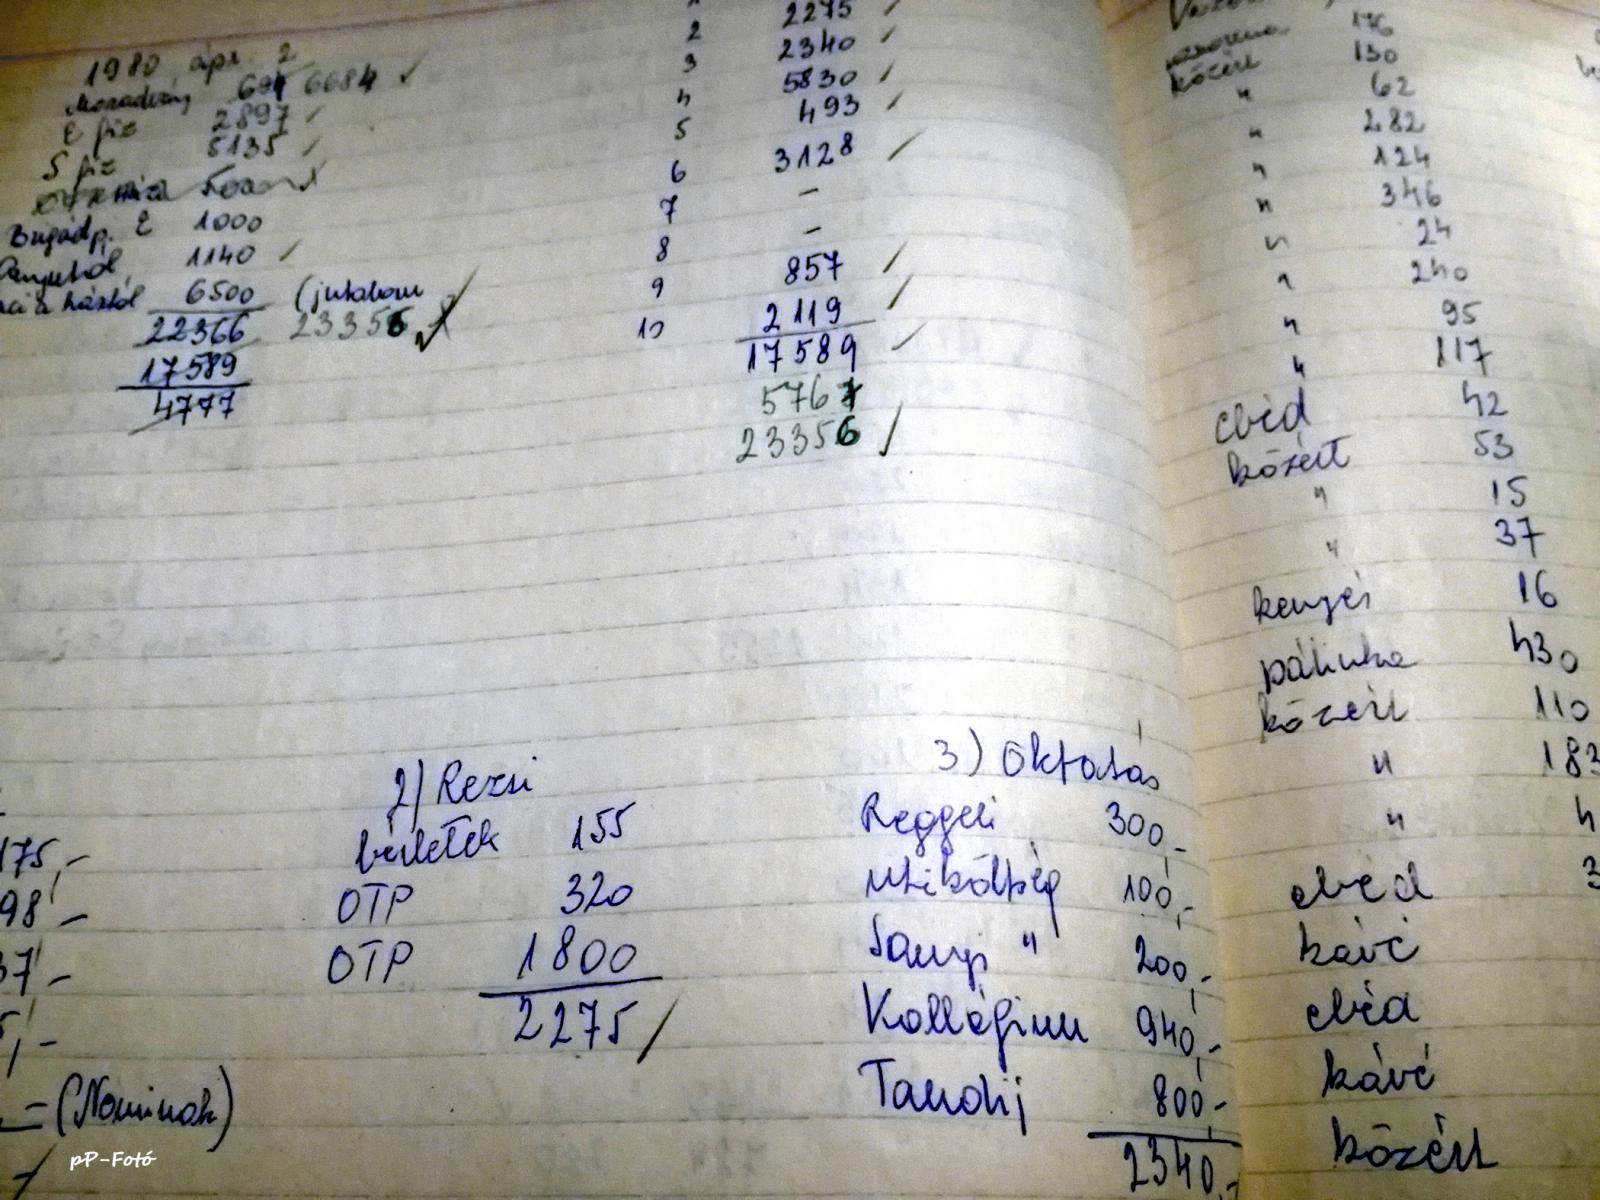 1980 ápr. 2
Maradvány 6684 ✓
E fiz 2897
S fiz 5135
Brigádp. E 1000
1140
6500 (jutalom
22366 23356
17589
4777
2 2275
3 2340
4 5830
5 493
6 3128
7 –
8 –
9 857
10 2119
17589
5767
23356
176
közért 130
" 62
" 282
" 124
" 346
" 24
" 240
" 95
" 117
ebéd 42
közért 53
" 15
" 37
kenyér 16
pálinka 430
közért 110
" 183
" 4
ebéd 3
kávé
ebéd
kávé
közért
175,-
98,-
37,-
5,-
= (Nóninak)
2) Rezsi
bérletek 155
OTP 320
OTP 1800
2275
3) Oktatás
Reggeli 300,-
Utiköltség 100,-
Sanyi " 200,-
Kollégium 940,-
Tandíj 800,-
2340,-
pP-Fotó